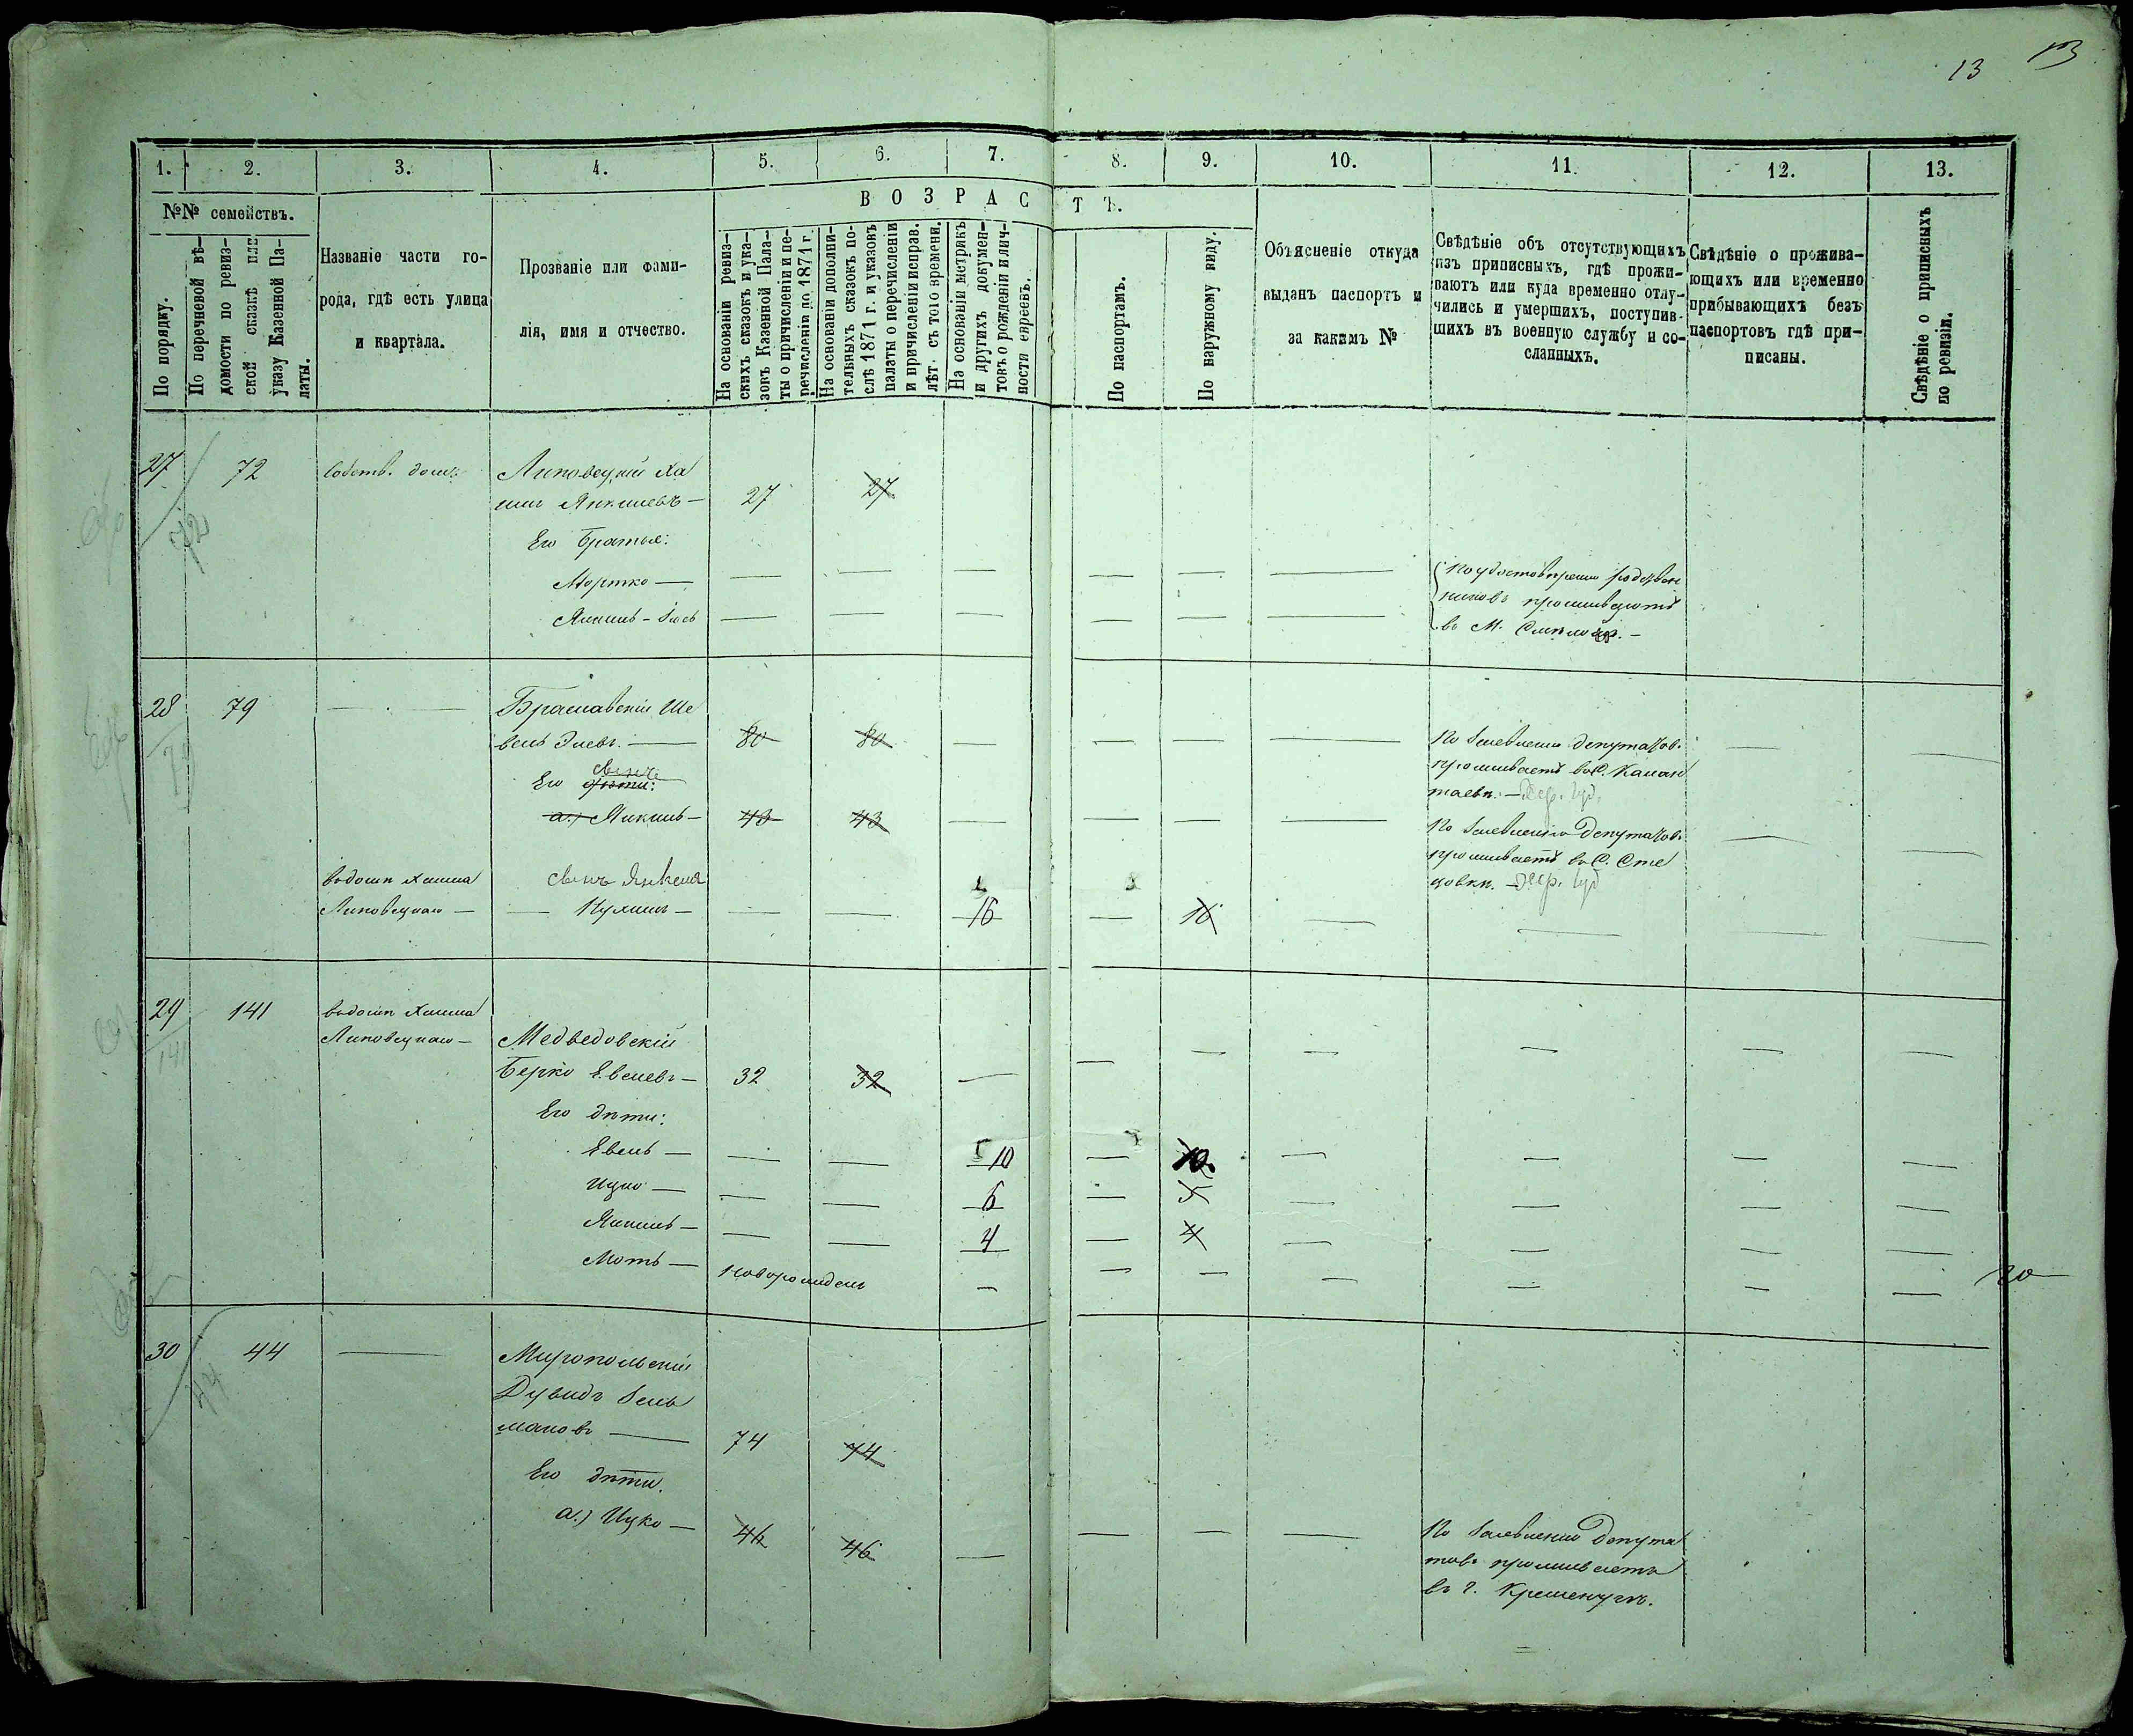 13 13
1. 2. 3. 4. 5. 6. 7. 8. 9. 10. 11. 12. 13.
№№ семействъ.
ВОЗРАСТЪ.
По порядку.
По перечневой вѣ-
домости по ревиз-
ской сказкѣ или
указу Казенной Па-
латы.
Названіе части го-
рода, гдѣ есть улица
и квартала.
Прозваніе или фами-
лія, имя и отчество.
На основаніи ревиз-
скихъ сказокъ и ука-
зовъ Казенной Пала-
ты о причисленіи и пе-
речисленіи до 1871 г.
На основаніи дополни-
тельныхъ сказокъ по-
слѣ 1871 г. и указовъ
палаты о перечисленіи
и причисленіи исправ.
лѣт. съ того времени.
На основаніи метрикъ
и другихъ докумен-
товъ о рожденіи и лич-
ности евреевъ.
По паспортамъ.
По наружному виду.
Объясненіе откуда
выданъ паспортъ и
за какимъ №
Свѣдѣніе объ отсутствующихъ
изъ приписныхъ, гдѣ прожи-
ваютъ или куда временно отлу-
чились и умершихъ, поступив-
шихъ въ военную службу и со-
сланныхъ.
Свѣдѣніе о прожива-
ющихъ или временно
прибывающихъ безъ
паспортовъ гдѣ при-
писаны.
Свѣдѣніе о приписныхъ
по ревизіи.
27 72 собств. домъ Липовецкій Ха
имъ Янкилевъ — 27 27
72
Его братья:
Мортко —
Янкель - Іось
По удостовѣренію родствен
никовъ проживаютъ
въ М.
28 79 Браславскій Ше
вель Элевъ. — 80 80
79
По заявленію депутатовъ
проживаетъ въ С. Капан
таевк. — Хер. губ.
Его сынъ
дѣти:
а.) Янкель — 43 43
По заявленію депутатовъ
проживаетъ въ С. Сте
цовкѣ. — Хер. губ
въ домѣ Хаима
Липовецкаго —
сынъ Янкеля
— Нухимъ — 16 16
29 141 въ домѣ Хаима
Липовецкаго — Медведовскій
141
Берко Евелевъ — 32 32
Его дѣти:
Евель — 10 10.
Ицко — 6 5
Янкель — 4 4
Моть — Новорожденъ
30 44 Миропольскій
44
Дувидъ Зель
мановъ — 74 74
Его дѣти.
а.) Ицко — 46 46
По заявленію Депута
товъ проживаетъ
въ г. Кременчугѣ.